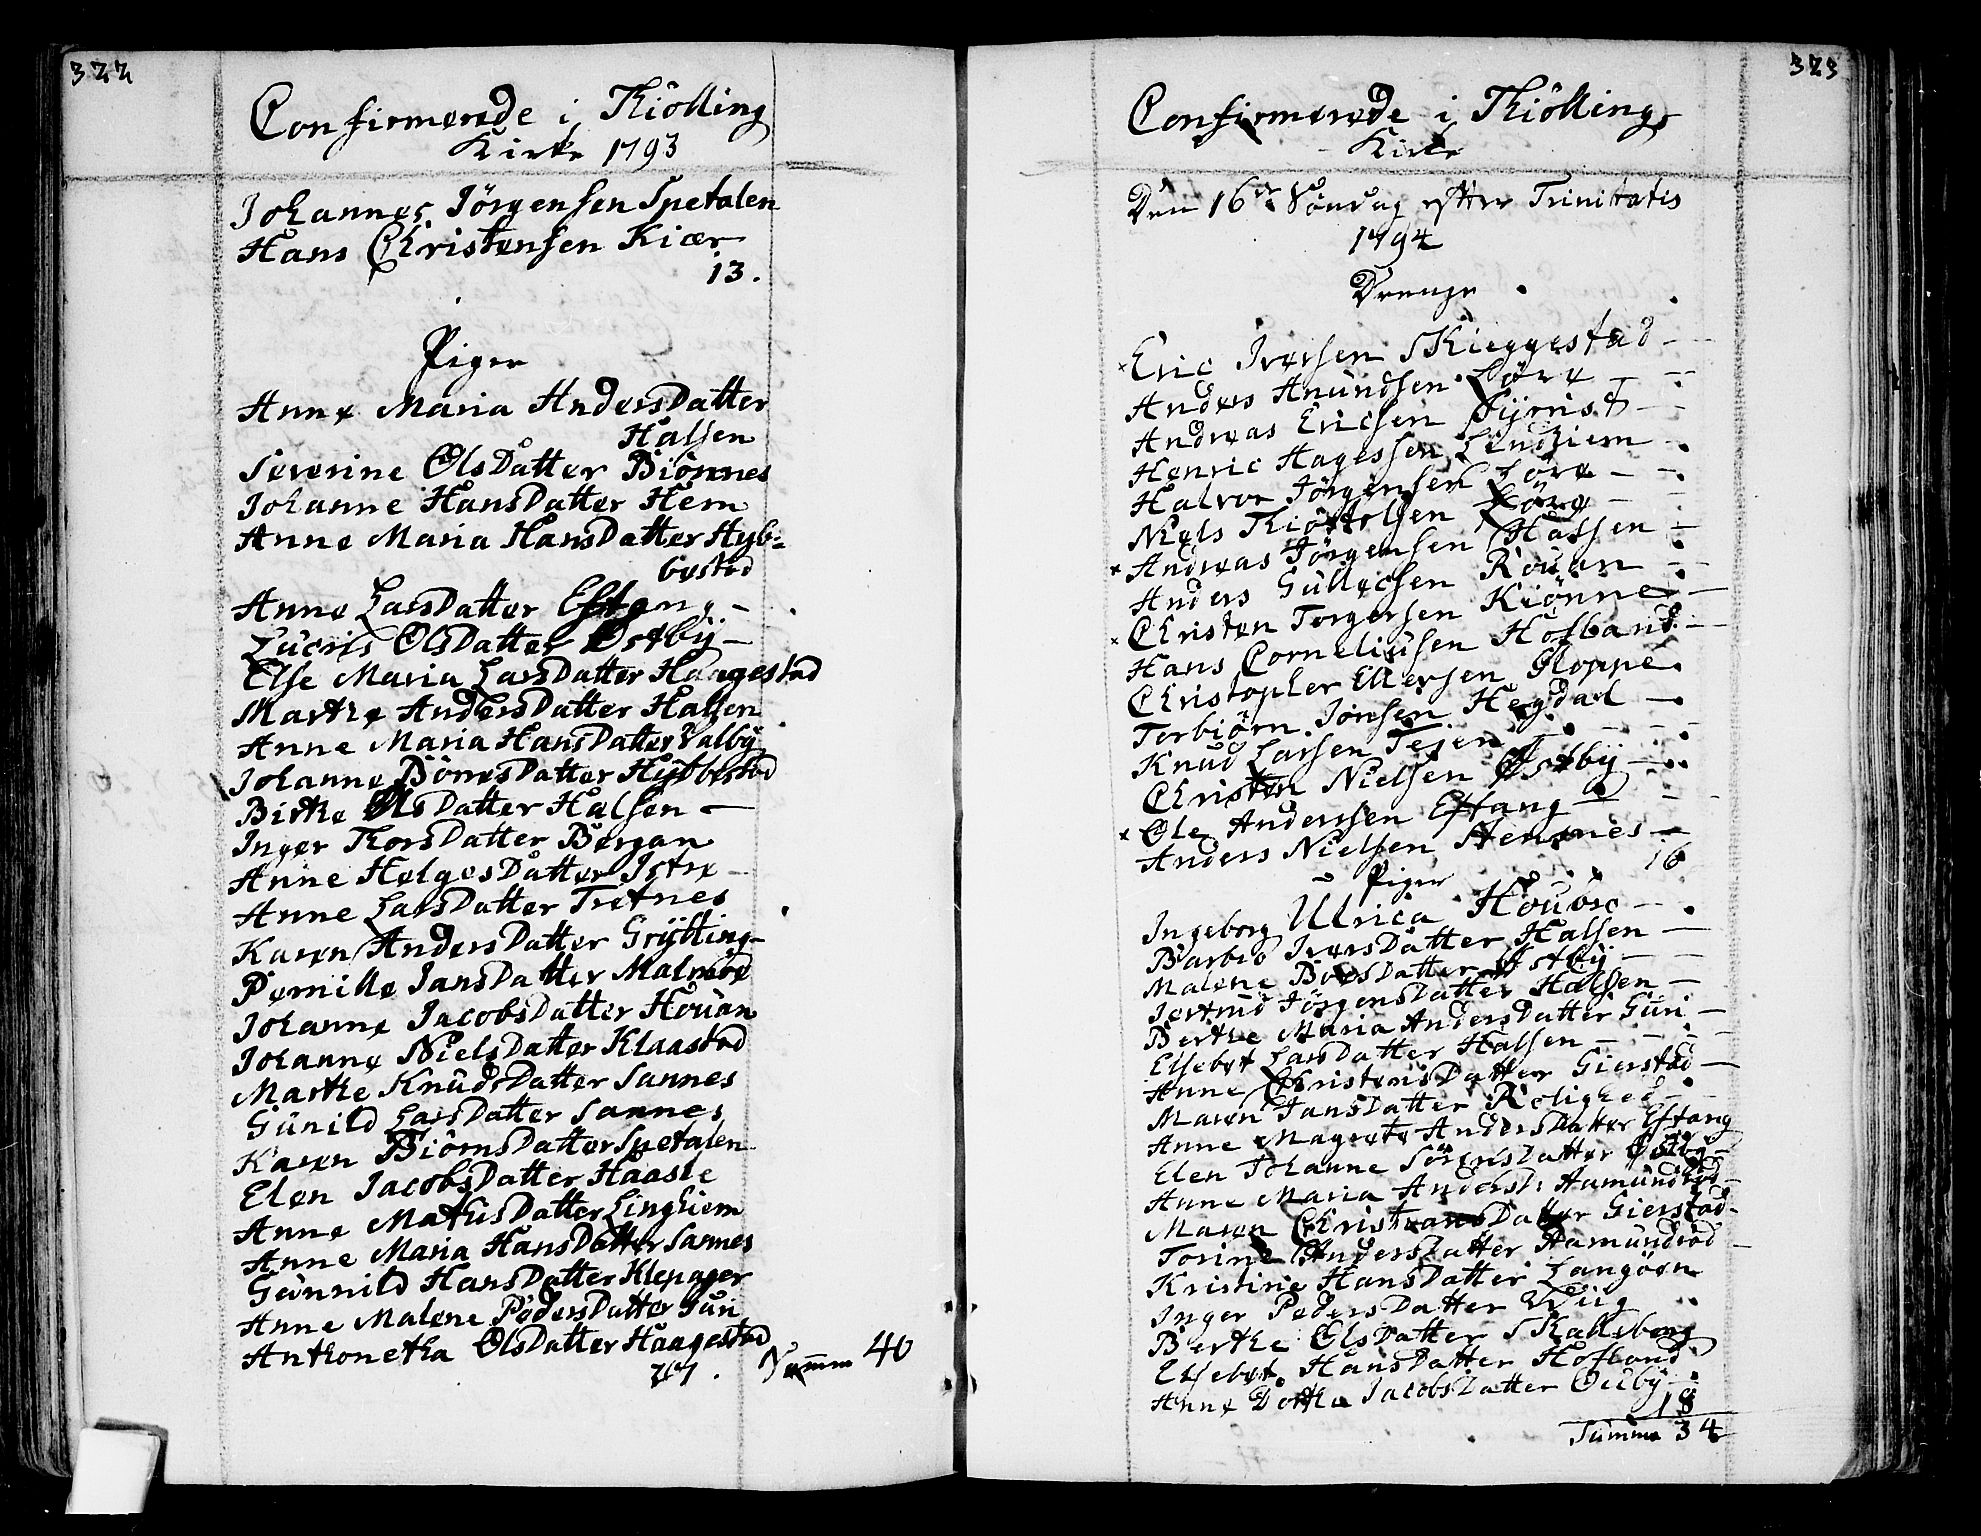 322
Confirmerede i Thiölling
Kirke 1793
Johannes Jörgensen Spetalen
Hans Christensen Kiær
13.
Piger
Anne Maria AndersDatter
Halsen
Severine OlsDatter Biönnes
Johanne HansDatter Hem
Anne Maria HansDatter Hyb=
bestad
Anne LarsDatter Eftang
Lucris OlsDatter Östbÿ
Else Maria LarsDatter Haagestad
Marthe AndersDatter Halsen
Anne Maria HansDatter Valbÿ
Johanne BörresDatter Hÿbbestad
Birthe OlsDatter Halsen
Inger ThorsDatter Bergan
Anne HelgesDatter Istre
Anne LarsDatter Tretnes
Karen AndersDatter Grÿtting
Pernille JansDatter
Johanne JacobsDatter Houan
Johanne NielsDatter Klaastad
Marthe KnudsDatter Sannes
Günild LarsDatter Sannes
Karen BiörnsDatter Spetalen
Elen JacobsDatter Haasle
Anne MatusDatter Linghiem
Anne Maria HansDatter Sannes
Gunnild HansDatter Klepager
Anne Malene PedersDatter Guri
Anthonetha OlsDatter Haagestad
27. Summa 40
323
Confirmerede i Thiölling
Kirke
Den 16de Söndag efter Trinitatis
1794
Drenge
Eric Iversen Skieggestad
Anders Anundsen Löve
Andreas Ericsen Fÿrrist
Henric Hagessen Lindhiem
Halvor Jörgensen Löve
Niels Kiöstolsen Löve
Andreas Jörgensen Halsen
Anders Gullicsen Rouan
Christen Torgersen Kiönner
Hans Corneliusen Hofland
Christopher Ellefsen Gloppe
Torbiörn Jonsen Hegdal
Knud Larsen Tejen
Christen Nielsen Östbÿ
Ole Andersen Eftang
Anders Nielsen Hemsnes
16
Piger
Ingeborg Ulrica
Barbro IversDatter Halsen
Malene BoesDatter Östbÿ
Jertrud JörgensDatter Halsen
Berthe Maria AndersDatter Guri
Elsebet LarsDatter Halsen
Anne ChristensDatter Gierstad
Maren JansDatter Rolighed
Anne Magrete AndersDatter Eftang
Elen Johanne SörensDatter Östbÿ
Anne Maria Andersdr Aamundröd
Maren ChristensDatter Gierstad
Torine AndersDatter Aamundröd
Kristine HansDatter Langöen
Inger PedersDatter Wiig
Berthe OlsDatter Skalleberg
Elsebet HansDatter Hofland
Anne Dorthe JacobsDatter Ouby
18
Summa 34